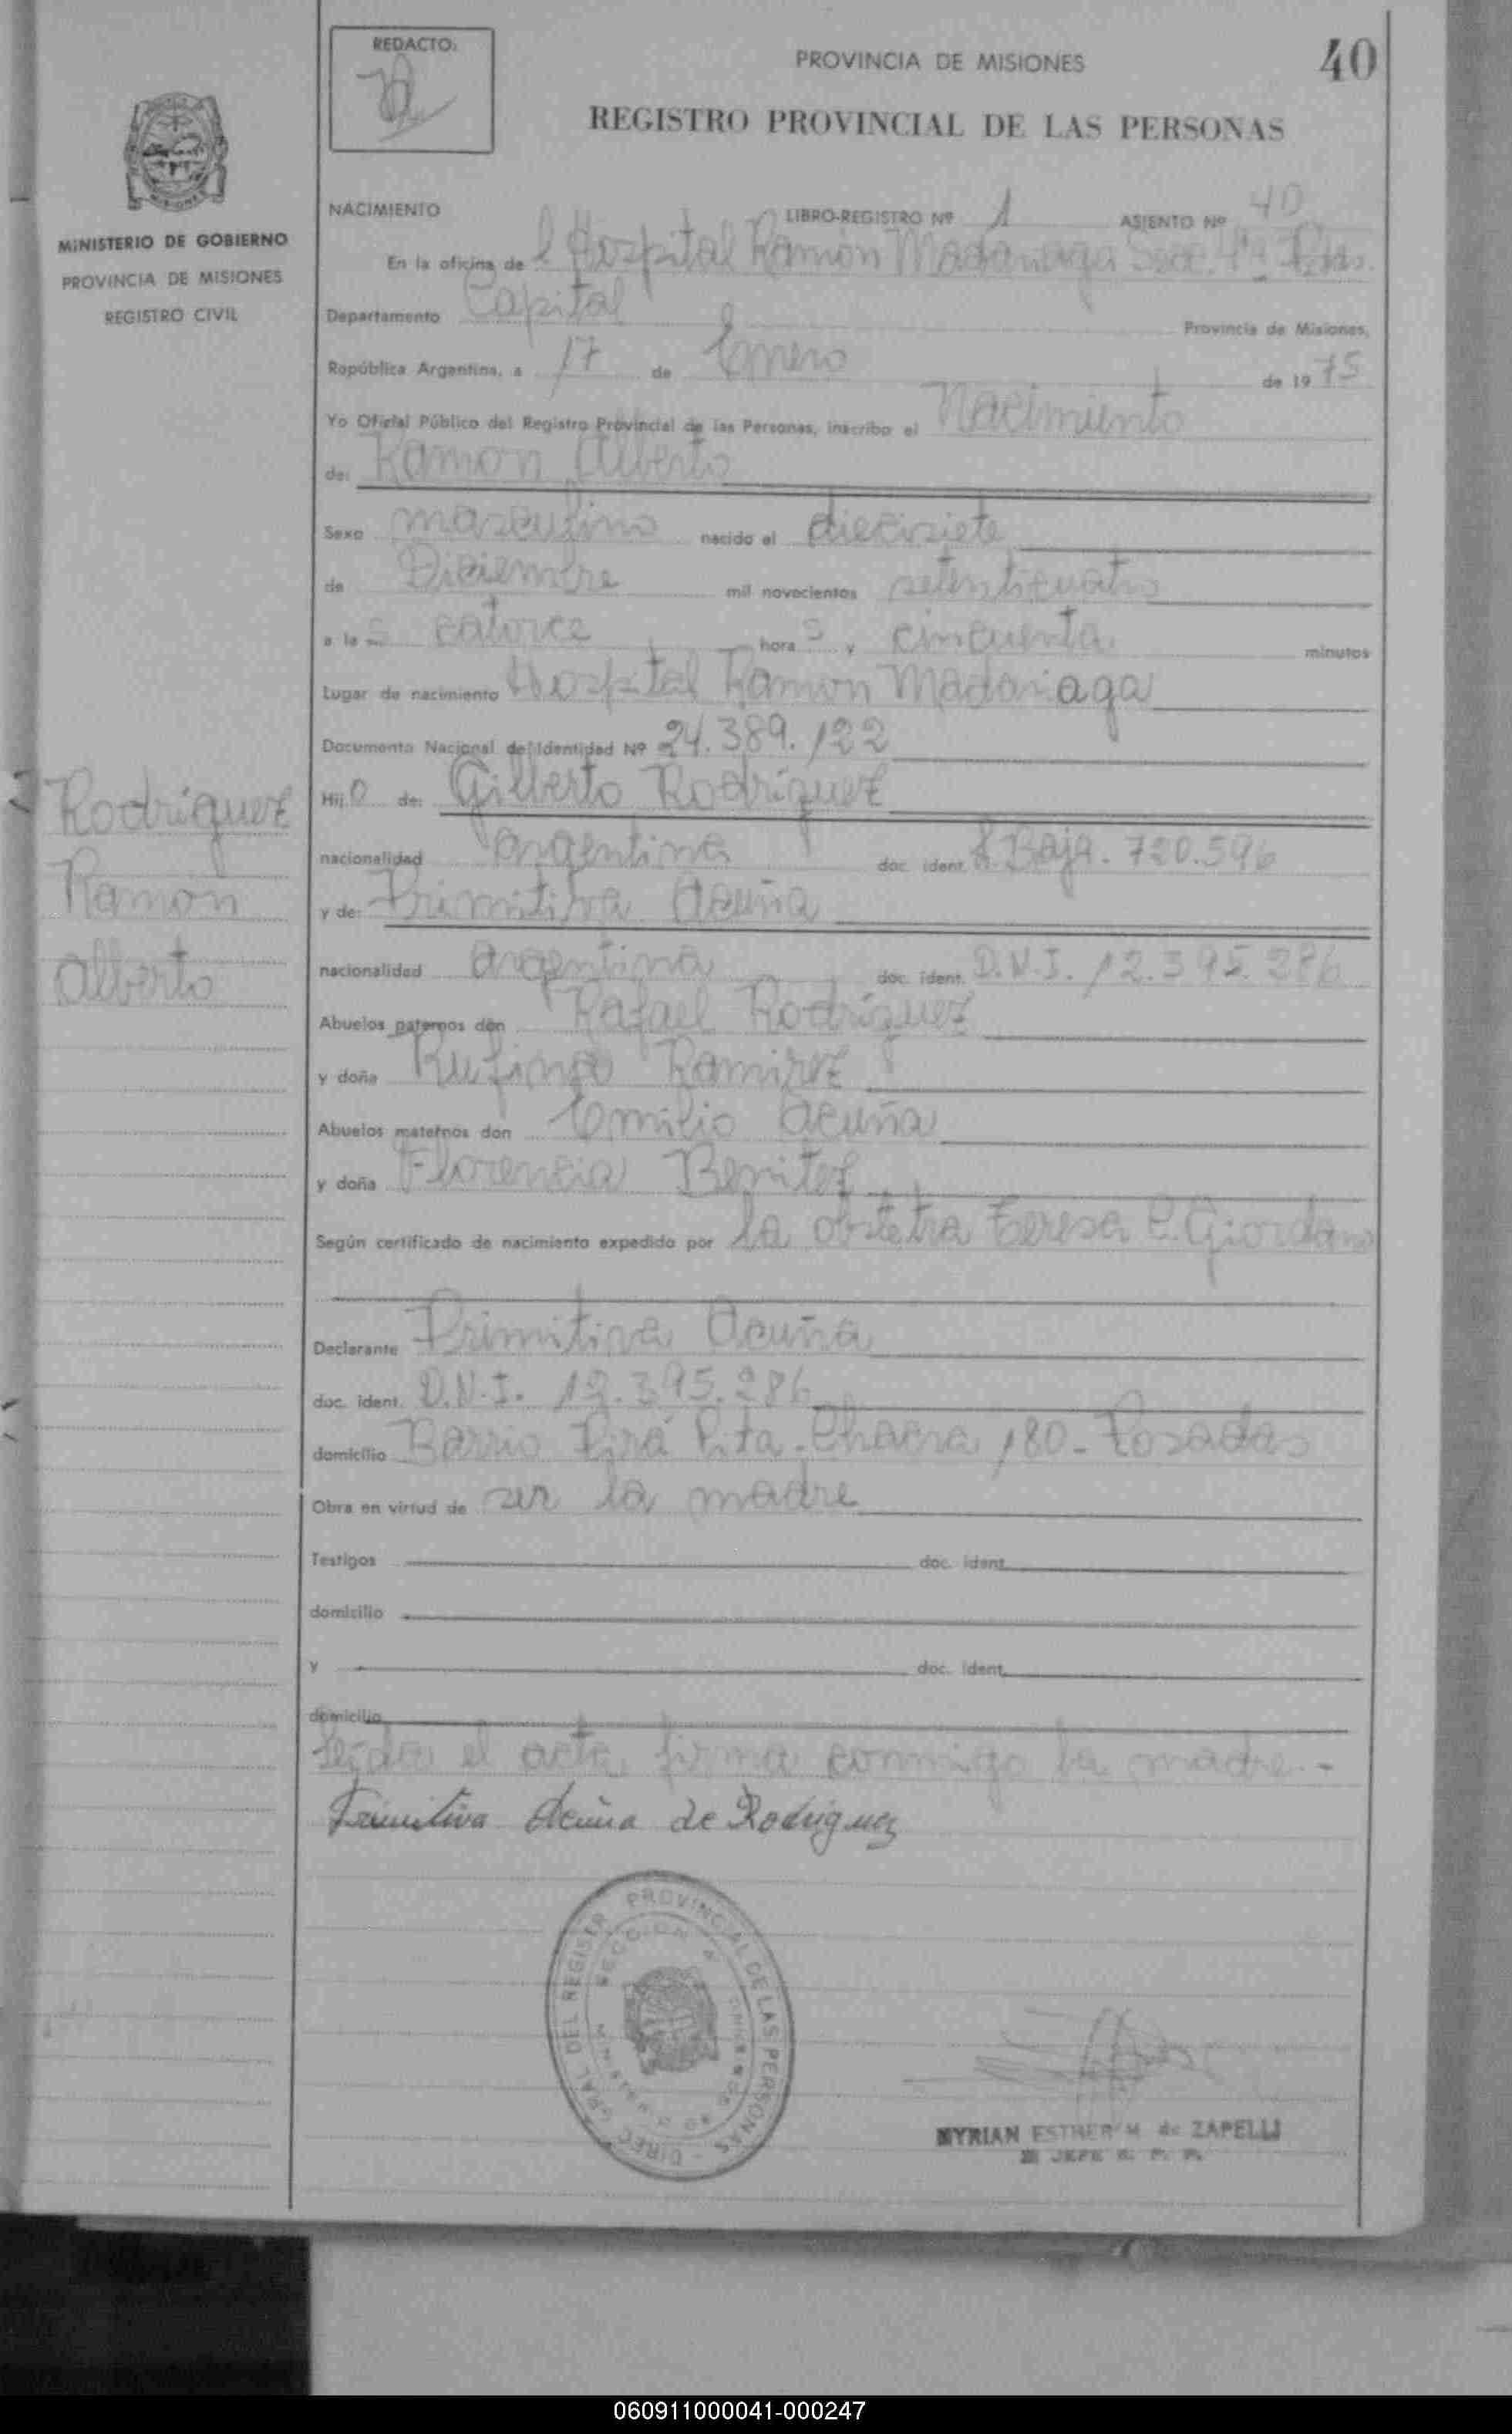 REDACTO:
PROVINCIA DE MISIONES
40
REGISTRO PROVINCIAL DE LAS PERSONAS
MINISTERIO DE GOBIERNO
PROVINCIA DE MISIONES
REGISTRO CIVIL
NACIMIENTO LIBRO-REGISTRO Nº 1 ASIENTO Nº 40
En la oficina de l Hospital Ramon Madariaga Secc. 4ª Pdas.
Departamento Capital Provincia de Misiones,
República Argentina, a 17 de Enero de 1975
Yo Oficial Público del Registro Provincial de las Personas, inscribo el Nacimiento
de: Ramon Alberto
Sexo masculino nacido el diecisiete
de Diciembre mil novecientos setenticuatro
a las catorce horas y cincuenta minutos
Lugar de nacimiento Hospital Ramon Madariaga
Documento Nacional de Identidad Nº 24.389.122
Rodriguez
Ramon
Alberto
Hijo de: Gilberto Rodriguez
nacionalidad argentina doc. ident. L. Baja. 720.596
y de: Primitiva Acuña
nacionalidad argentina doc. ident. D.N.I. 12.395.286
Abuelos paternos don Rafael Rodriguez
y doña Rufina Ramirez
Abuelos maternos don Emilio Acuña
y doña Florencia Benitez
Según certificado de nacimiento expedido por la obstetra Teresa C. Giordano
Declarante Primitiva Acuña
doc. ident. D.N.I. 12.395.286
domicilio Barrio Pirá Pita - Chacra 180 - Posadas
Obra en virtud de ser la madre
Testigos doc. ident.
domicilio
y doc. ident.
domicilio
Leída el acta, firma conmigo la madre.-
Primitiva Acuña de Rodriguez
DIREC. GRAL DEL REGISTR PROVINCIAL DE LAS PERSONAS
SECCION 4
MYRIAN ESTHER M. de ZAPELLI
JEFE R. P. P.
060911000041-000247